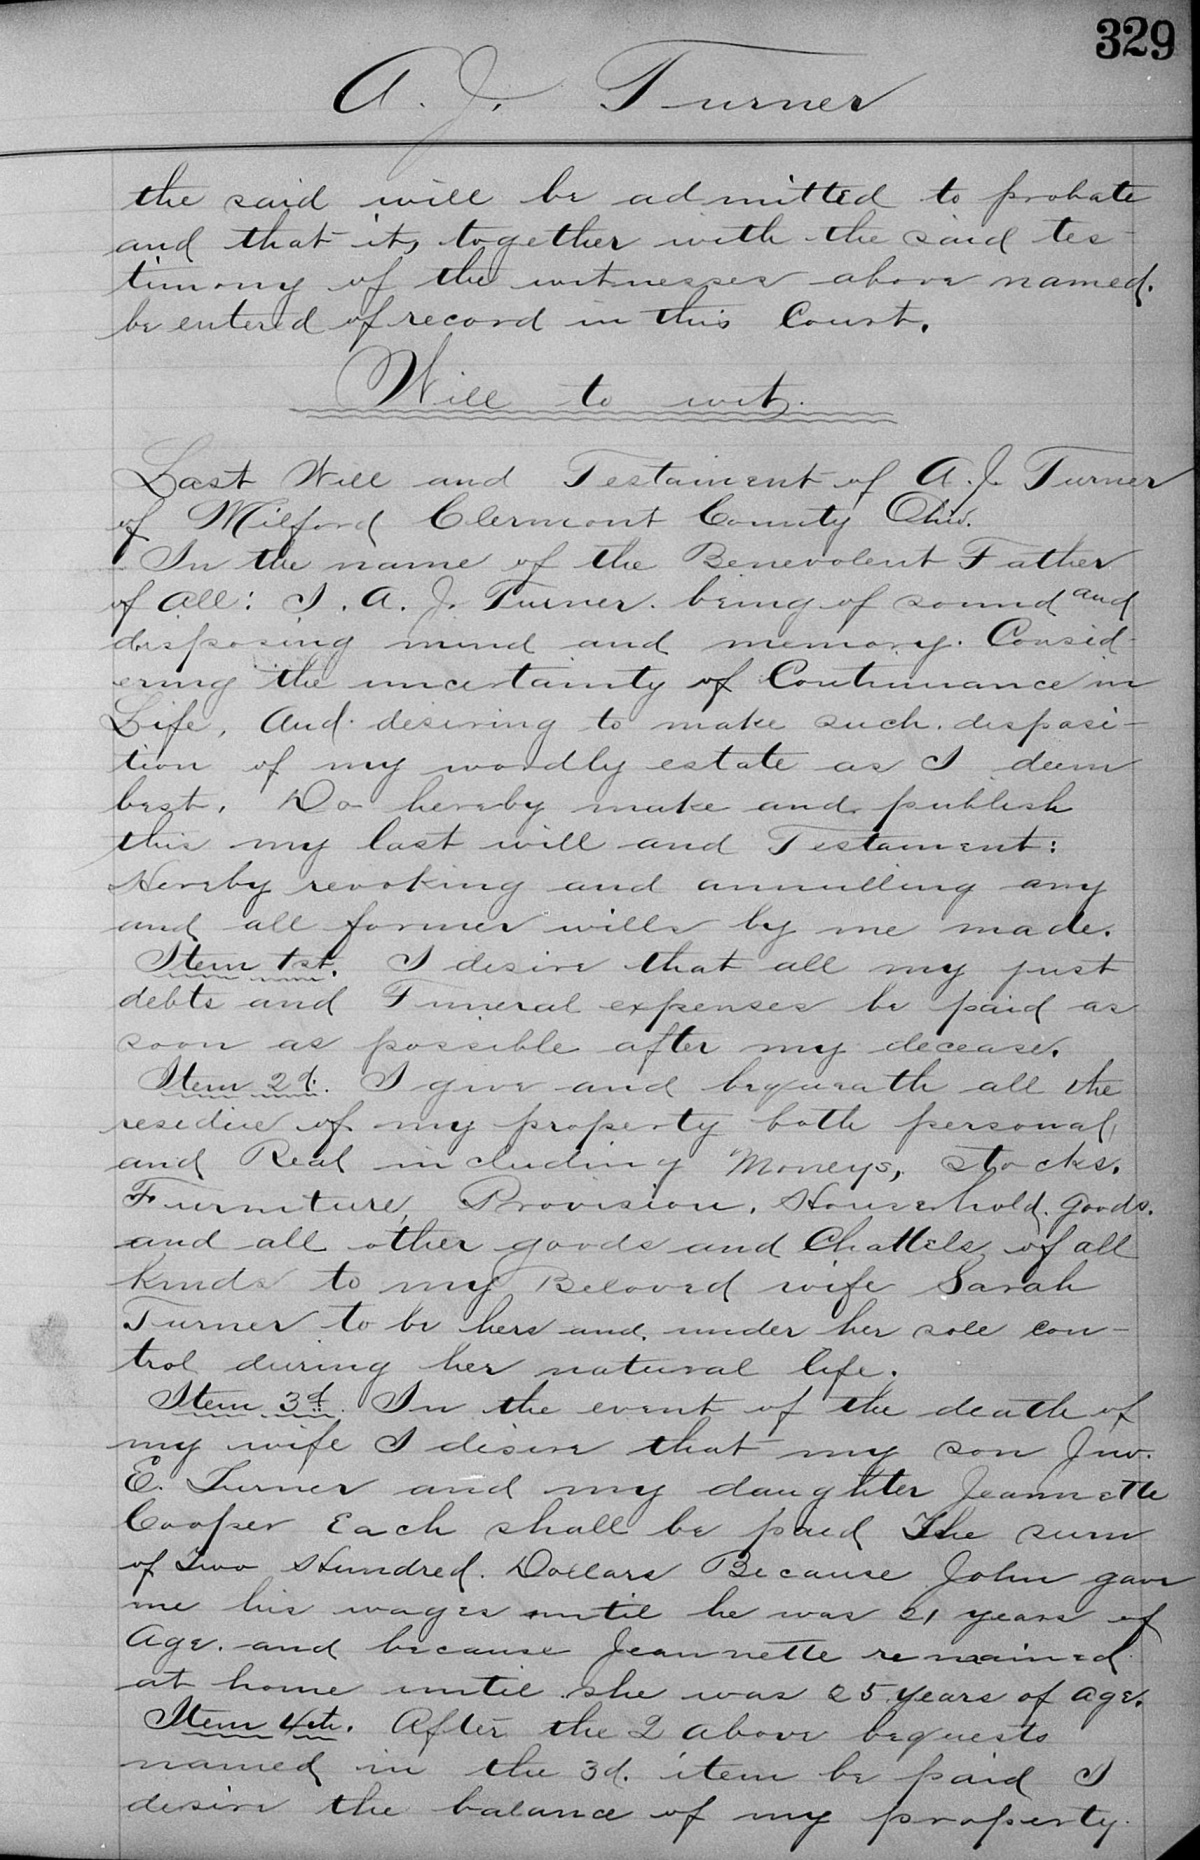 329
A. J. Turner
the said will be admitted to probate
and that it, together with the said tes-
timony of the witnesses above named.
be entered of record in this Court.
Will to wit.
Last Will and Testament of A. J. Turner
of Milford Clermont County Ohio.
In the name of the Benevolent Father
of all: I. A. J. Turner. being of sound and
disposing mind and memory. Consid-
ering the uncertainty of Continuance in
Life, And desiring to make such disposi-
tion of my wordly estate as I deem
best. Do hereby make and publish
this my last will and Testament:
Hereby revoking and annulling any
and all former wills by me made.
Item 1st. I desire that all my just
debts and Funeral expenses be paid as
soon as possible after my decease.
Item 2d. I give and bequeath all the
residue of my property both personal,
and Real including Moneys, stocks.
Furniture, Provision, Household goods.
and all other goods and Chattels of all
kinds to my Beloved wife Sarah
Turner to be hers and under her sole con-
trol during her natural life.
Item 3d. In the event of the death of
my wife I desire that my son Jno.
E. Turner and my daughter Jeannette
Cooper Each shall be paid The sum
of Two Hundred Dollars Because John gave
me his wages until he was 21 years of
Age. and because Jeannette remained
at home until she was 25 years of age.
Item 4th. After the 2 above bequests
named in the 3d. item be paid I
desire the balance of my property.